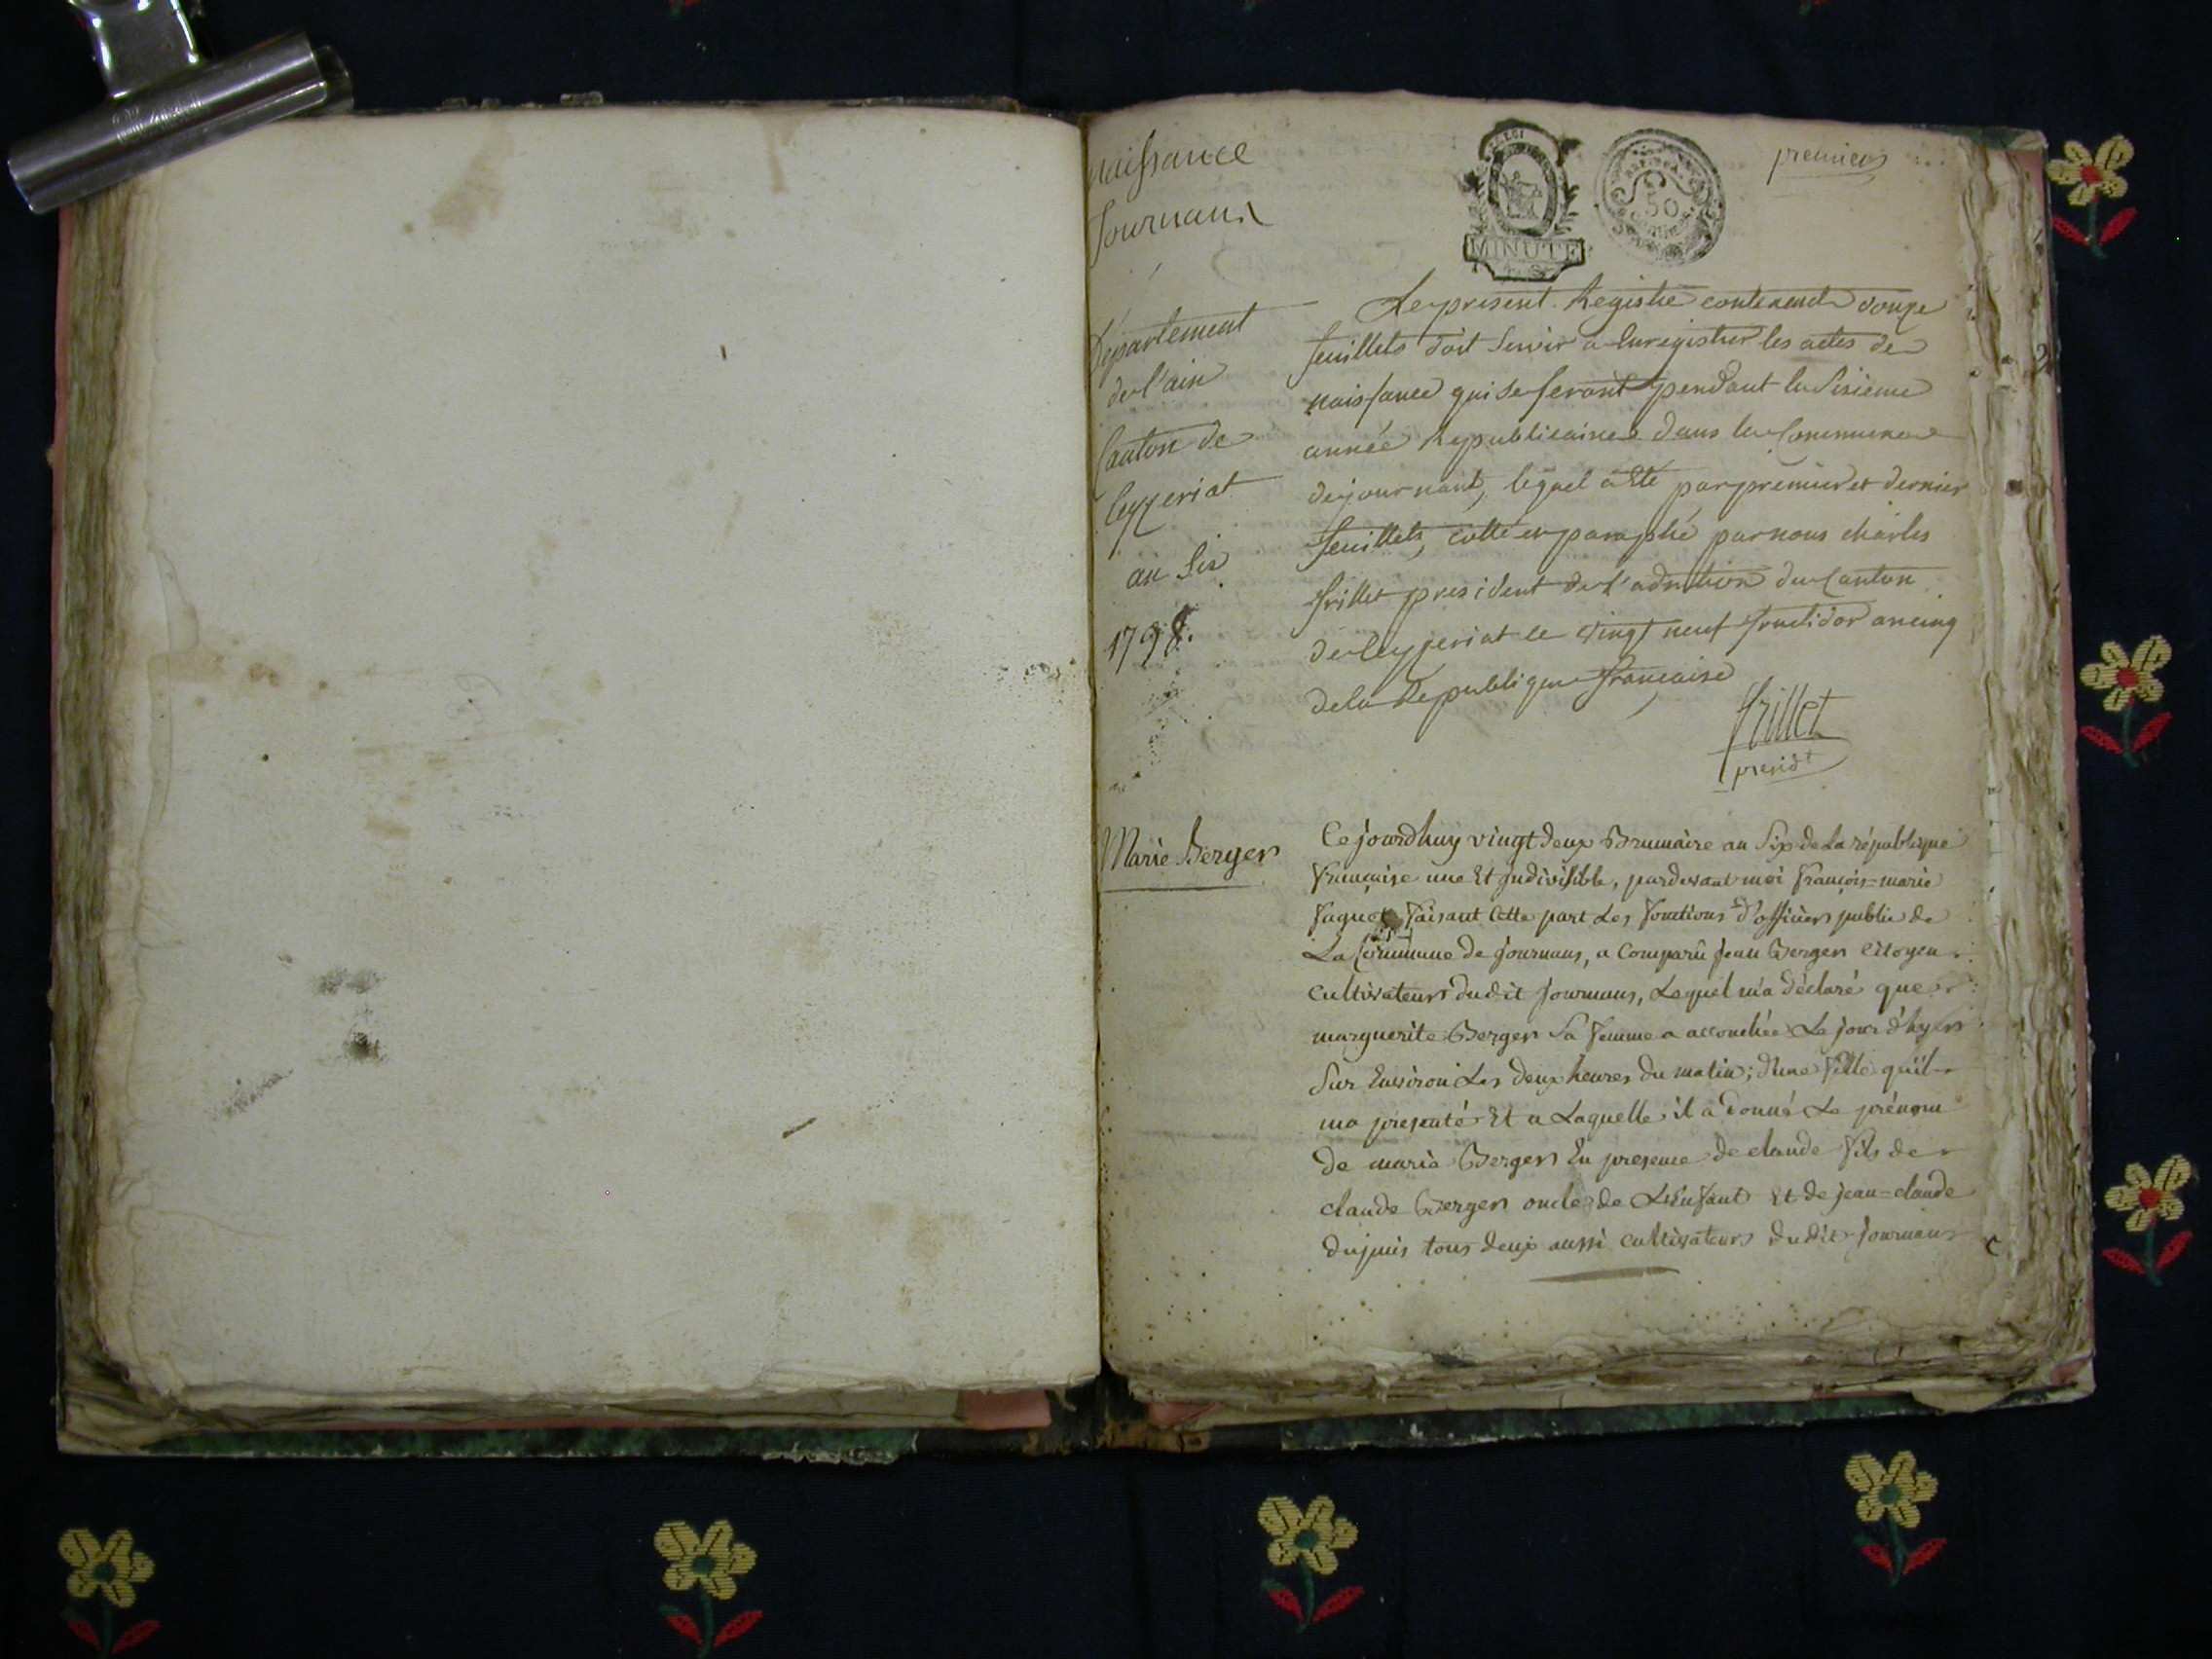 naissance
Journans
premier
MINUTE
50
Département
de l'ain
Canton de
Ceyzeriat
an Six
1798.
Le present Registre contenant douze
feuillets doit Servir a Enregistrer les actes de
naissance qui se feront pendant la Sixieme
année Republicaine dans la Commune
de journans, lequel a Eté par premier et dernier
feuillets, cotté et paraphé par nous charles
frillet president de l'adm.tion du Canton
de Ceyzeriat le vingt neuf fructidor an cinq
de la Republique française
frillet
presid.t
Marie Berger
Ce jourdhuy vingt deux Brumaire an Six de La république
Française une Et indivisible, pardevant moi François=marie
Faguet Faisant Cette part Les Fonctions d'officier public de
La Commune de Journans, a Comparû Jean Berger citoyen
cultivateur dudit Journans, Lequel m'a déclaré que
marguerite Berger Sa Femme a accouchée Le jour d'hyer
Sur Environ Les deux heures du matin; d'une Fille qu'il
ma presenté Et a Laquelle il a donné Le prénom
de marie Berger En presence de claude Fils de
claude Berger oncle de L'Enfant Et de jean=claude
dupuis tous deux aussi cultivateurs dudit Journans